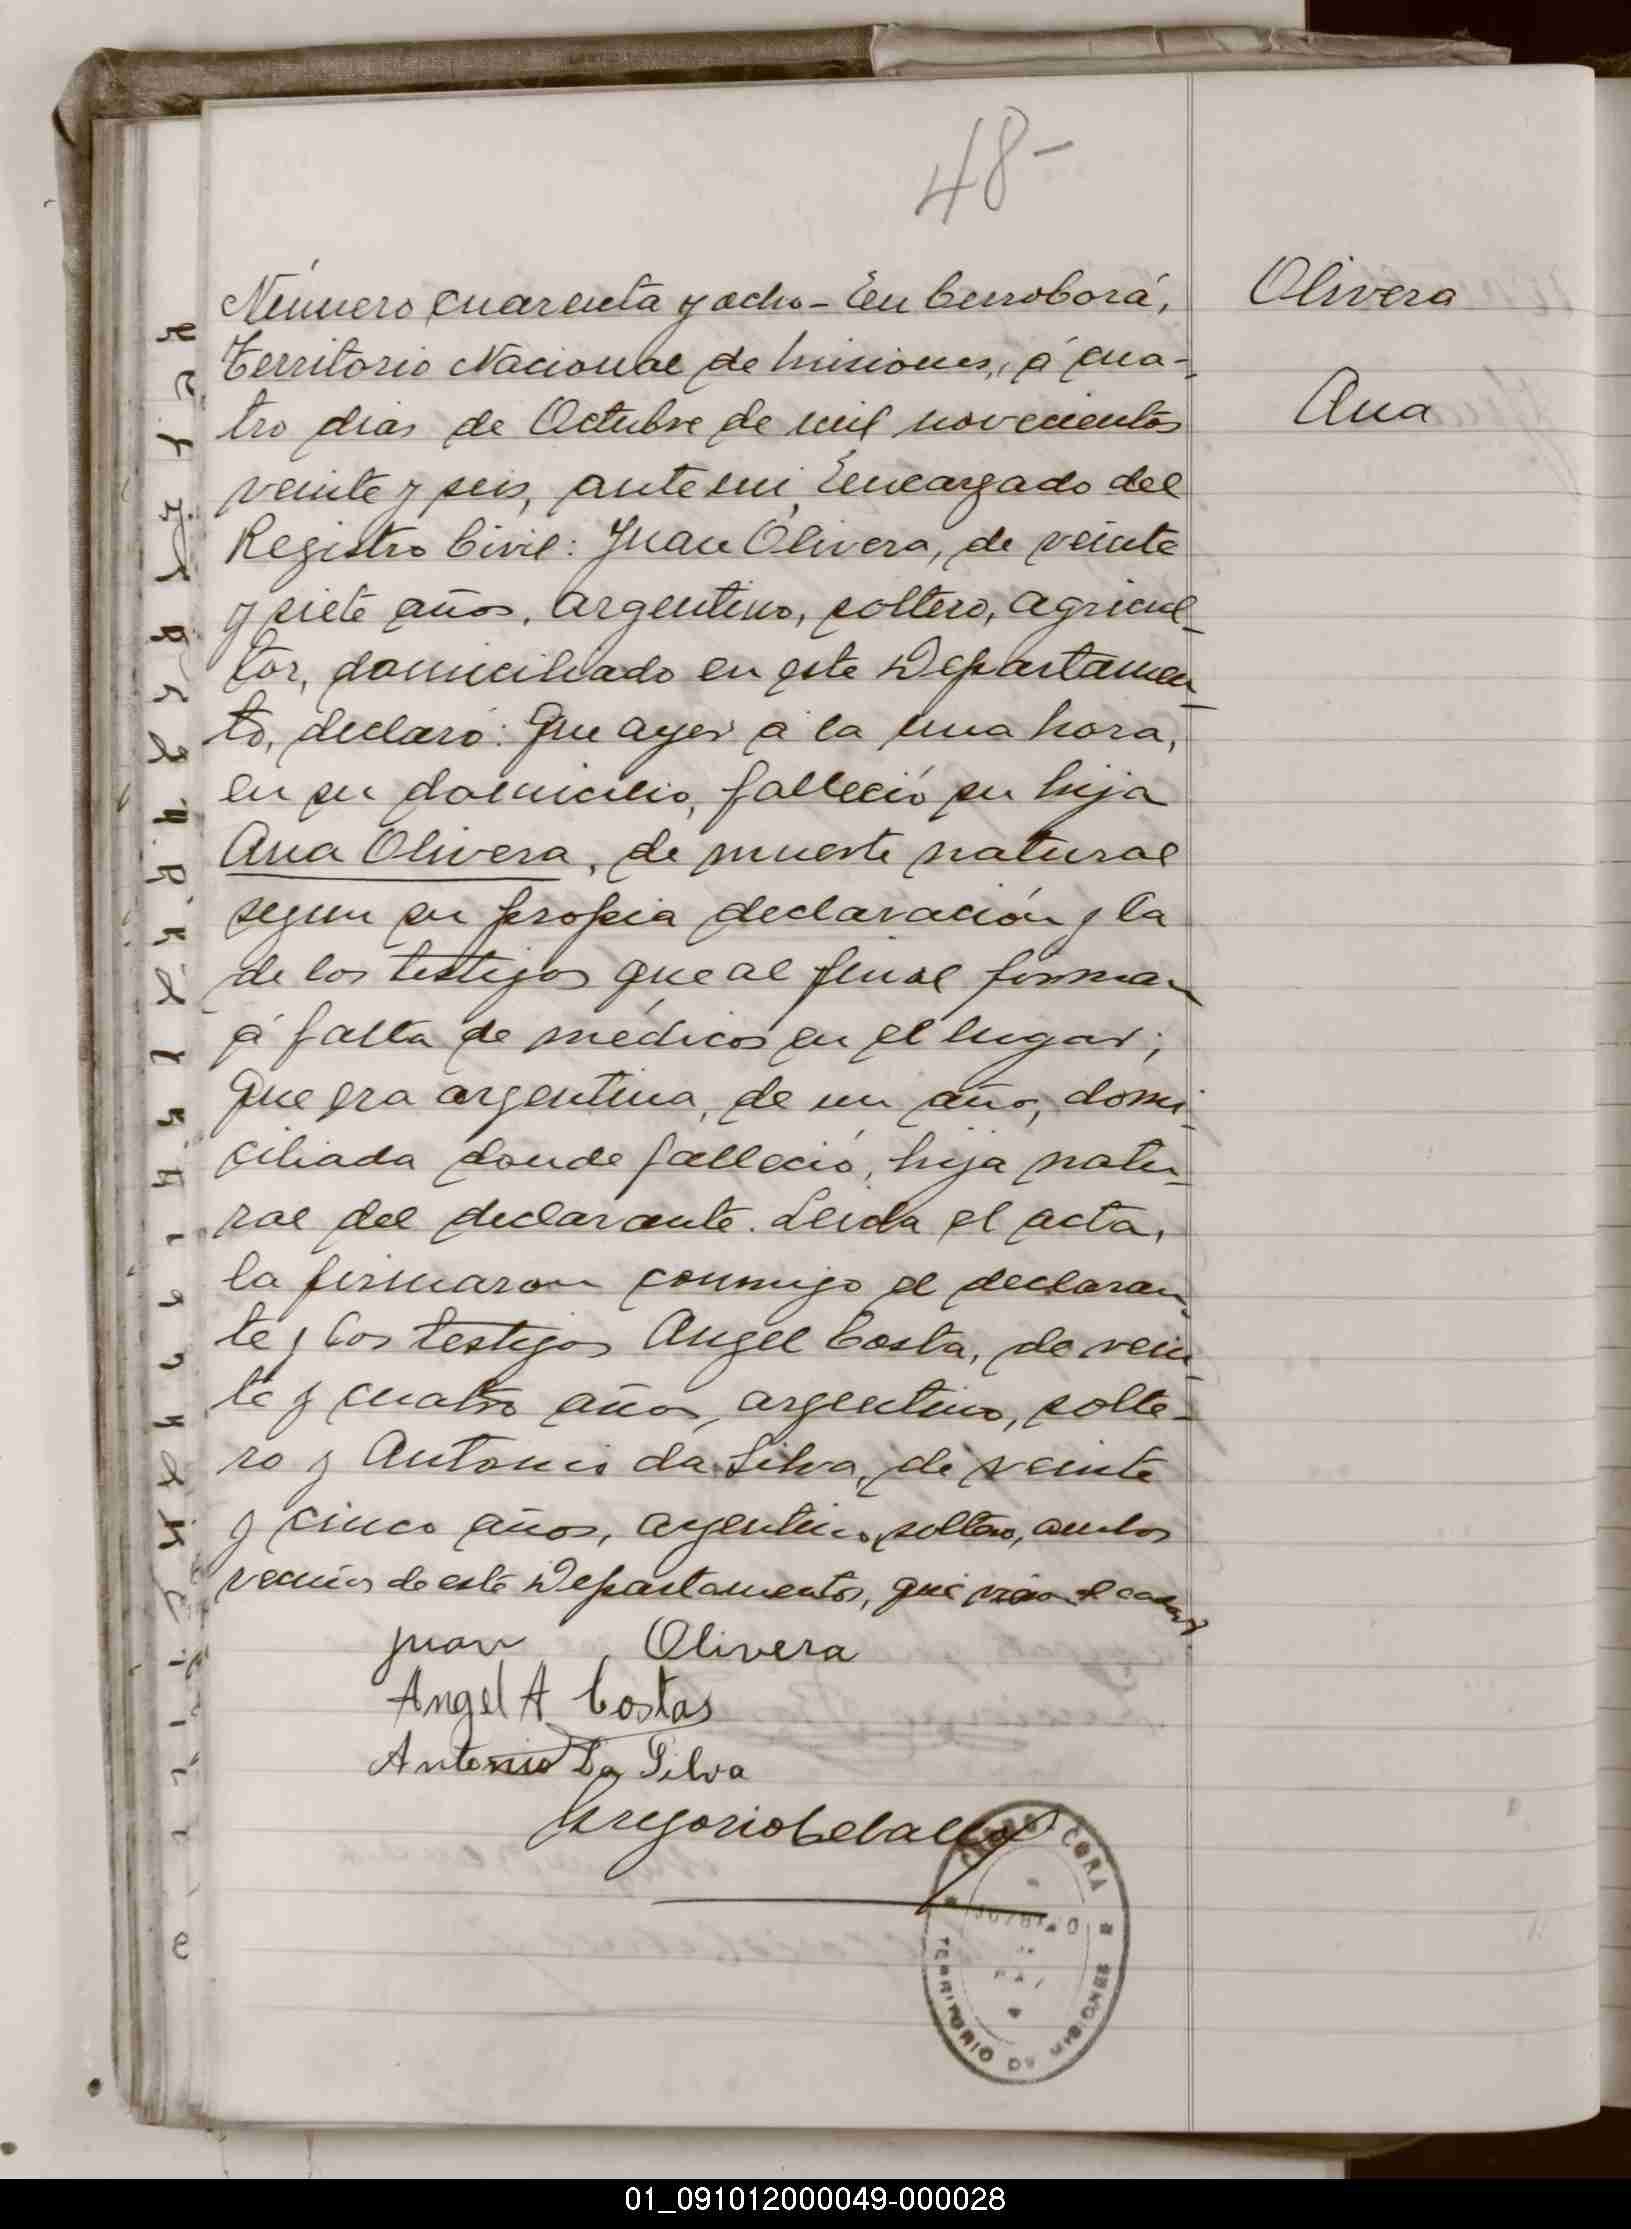 48-
Número cuarenta y ocho - En Cerro Corá,
Territorio Nacional de Misiones, á cua-
tro dias de Octubre de mil novecientos
veinte y seis, ante mi, Encargado del
Registro Civil: Juan Olivera, de veinte
y siete años, argentino, soltero, agricul-
tor, domiciliado en este Departamen-
to, declaró: Que ayer á la una hora,
en su domicilio, falleció su hija
Ana Olivera, de muerte natural
segun su propia declaración y la
de los testigos que al final firman
á falta de médicos en el lugar;
Que era argentina, de un año, domi-
ciliada donde falleció, hija natu-
ral del declarante. Leida el acta,
la firmaron conmigo el declaran-
te y los testigos Angel Costa, de vein-
te y cuatro años, argentino, solte-
ro y Antonio da Silva, de veinte
y cinco años, argentino, soltero, ambos
vecinos de este Departamento, que el
Juan Olivera
Angel A Costas
Antonio Da Silva
Gregorio
Olivera
Ana
CORÁ
TERRITORIO DE MISIONES
01_091012000049-000028